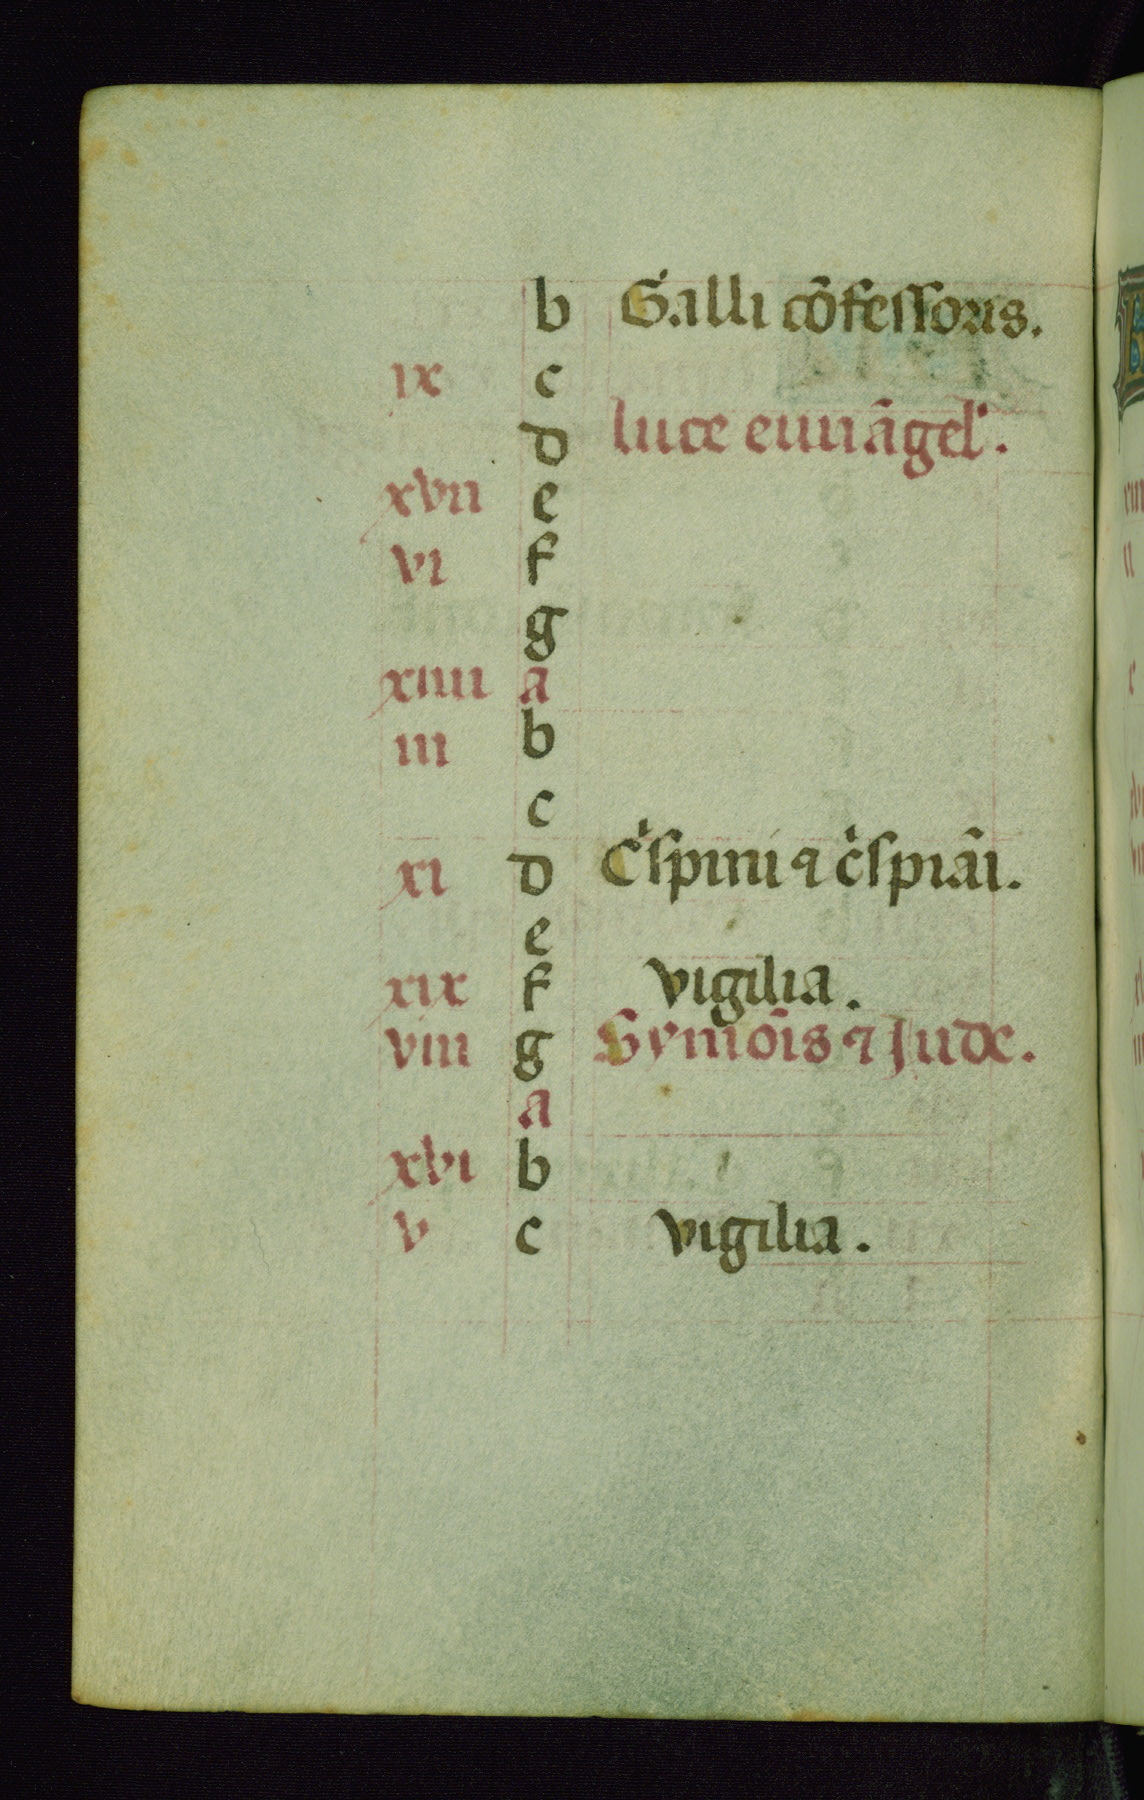 b Galli cõfessoris.
ix c
d luce euuãgel'.
xvii e
vi f
g
xiiii a
iii b
c
xi d C'spini ⁊ c'spiãi.
e
xix f vigilia.
viii g Symõis ⁊ Jude.
a
xvi b
v c vigilia.